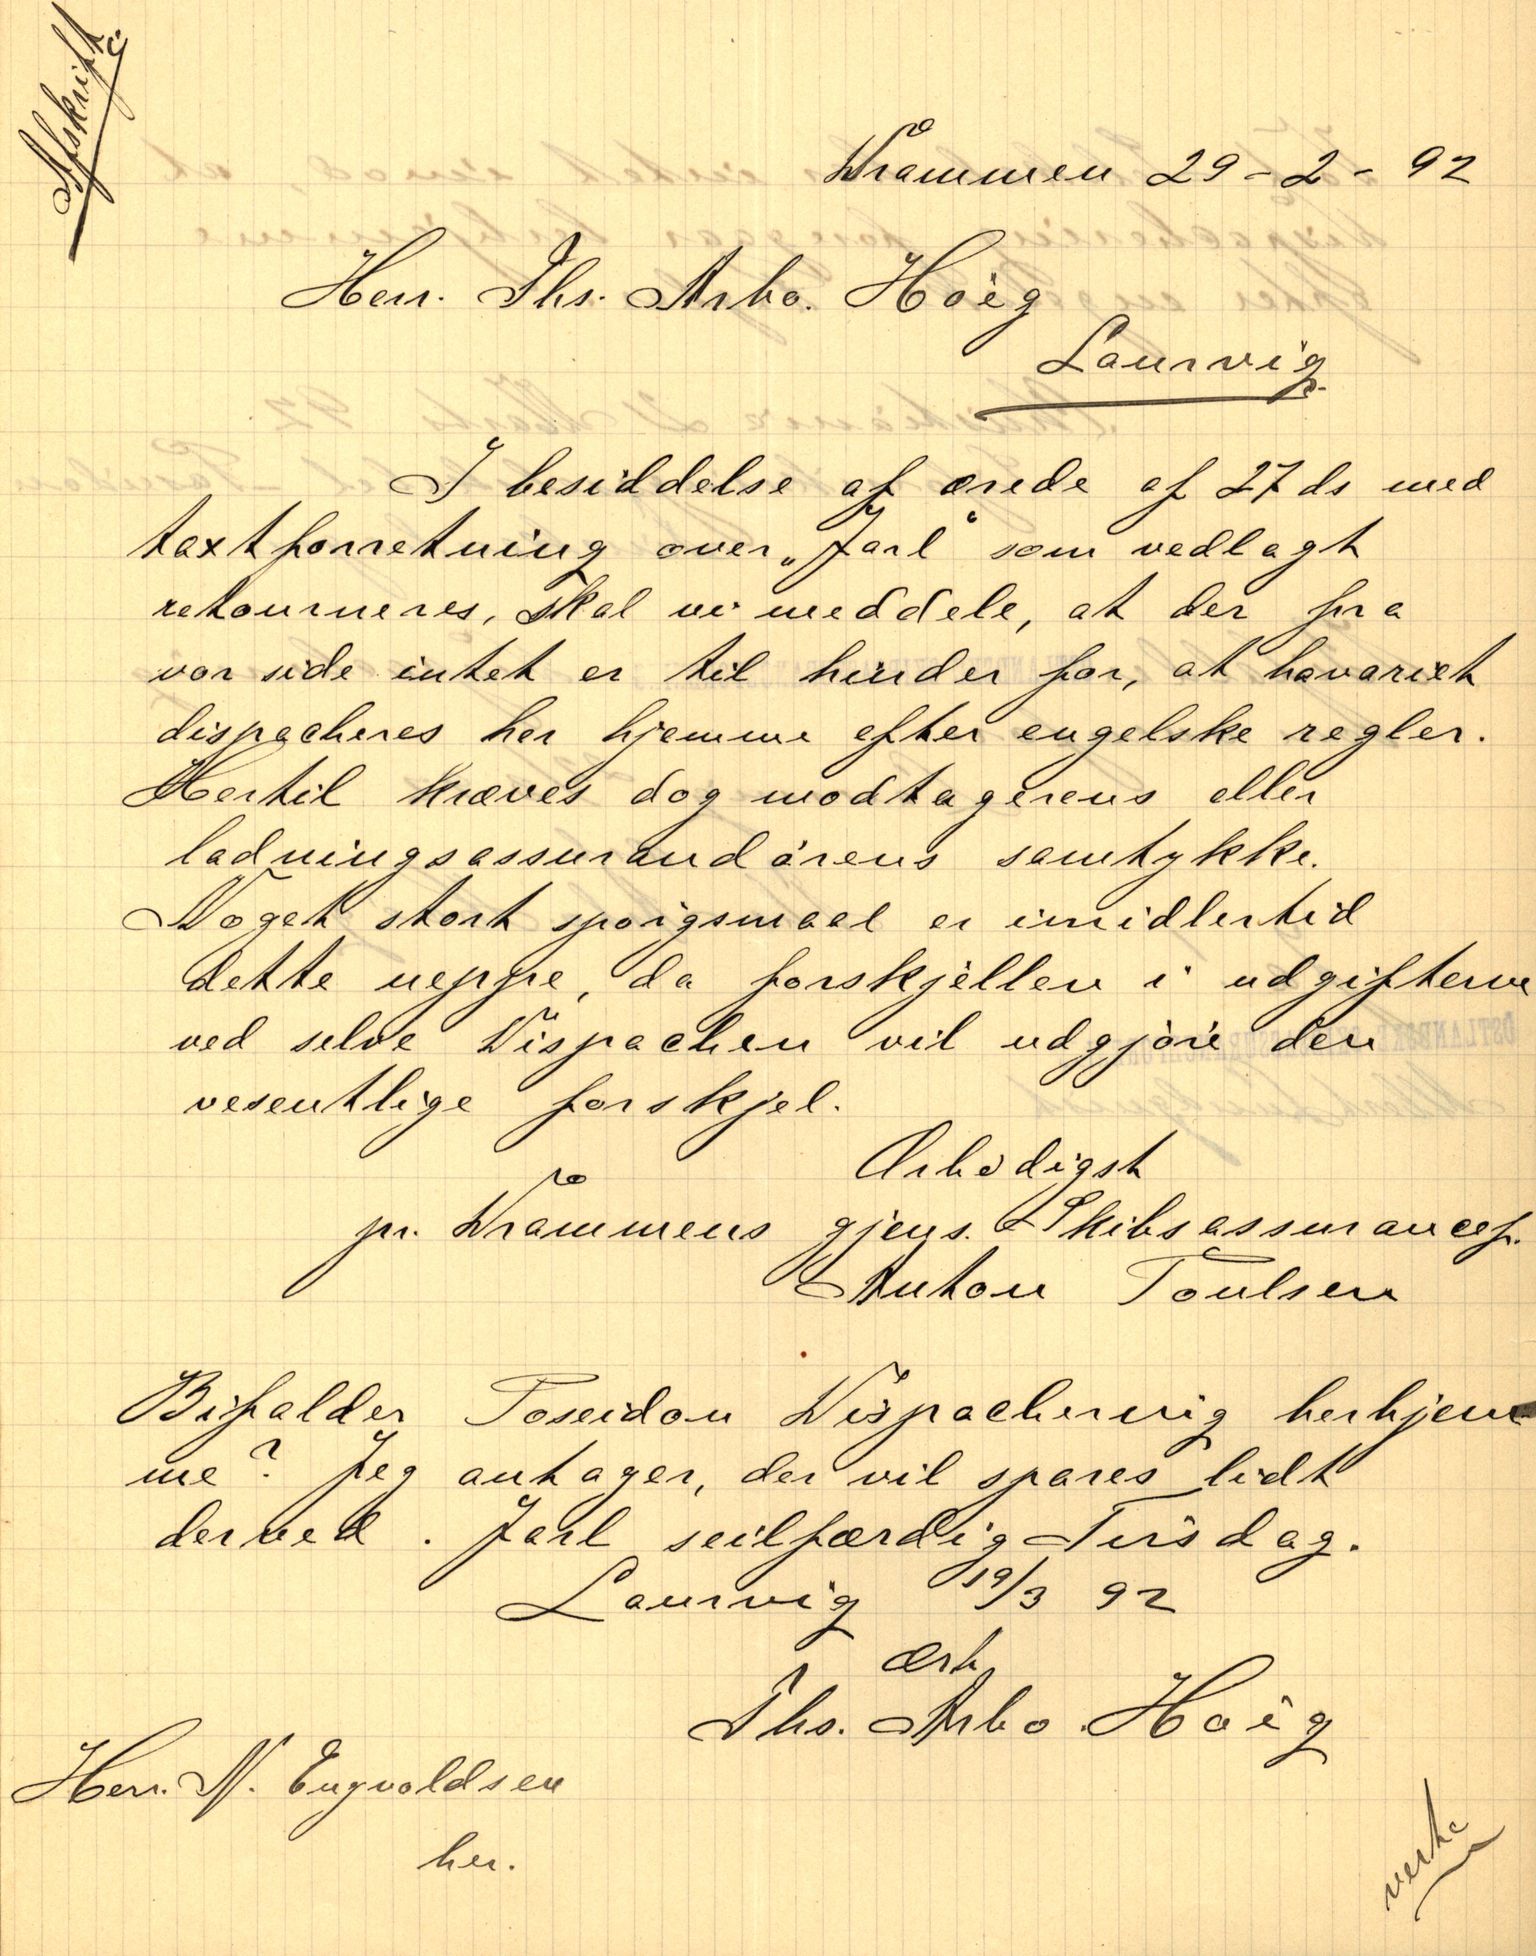 Afskrift.
Drammen 29-2-92
Herr. Ths. Arbo. Höeg
Laurvig.
I besiddelse af ærede af 27 ds med
taxtforretning over „Jarl“ som vedlagt
retourneres, skal vi meddele, at der fra
vor side intet er til hinder for, at havariet
dispacheres her hjemme efter engelske regler.
Hertil kræves dog modtagerens eller
ladningsassurandörens samtykke.
Noget stort spörgsmaal er imidlertid
dette neppe, da forskjellen i udgifterne
ved selve Dispachen vil udgjöre den
vesentlige forskjel.
Ærbödigst
pr. Drammens gjens. Skibsassurancef.
Anton Poulsen
Bifalder Poseidon Dispachering herhjem
me? Jeg antager, der vil spares lidt
derved. Jarl seilfærdig Tirsdag.
Laurvig 19/3 92
Ærb.
Ths. Arbo. Höeg
Herr. N. Engvoldsen
her.
verte